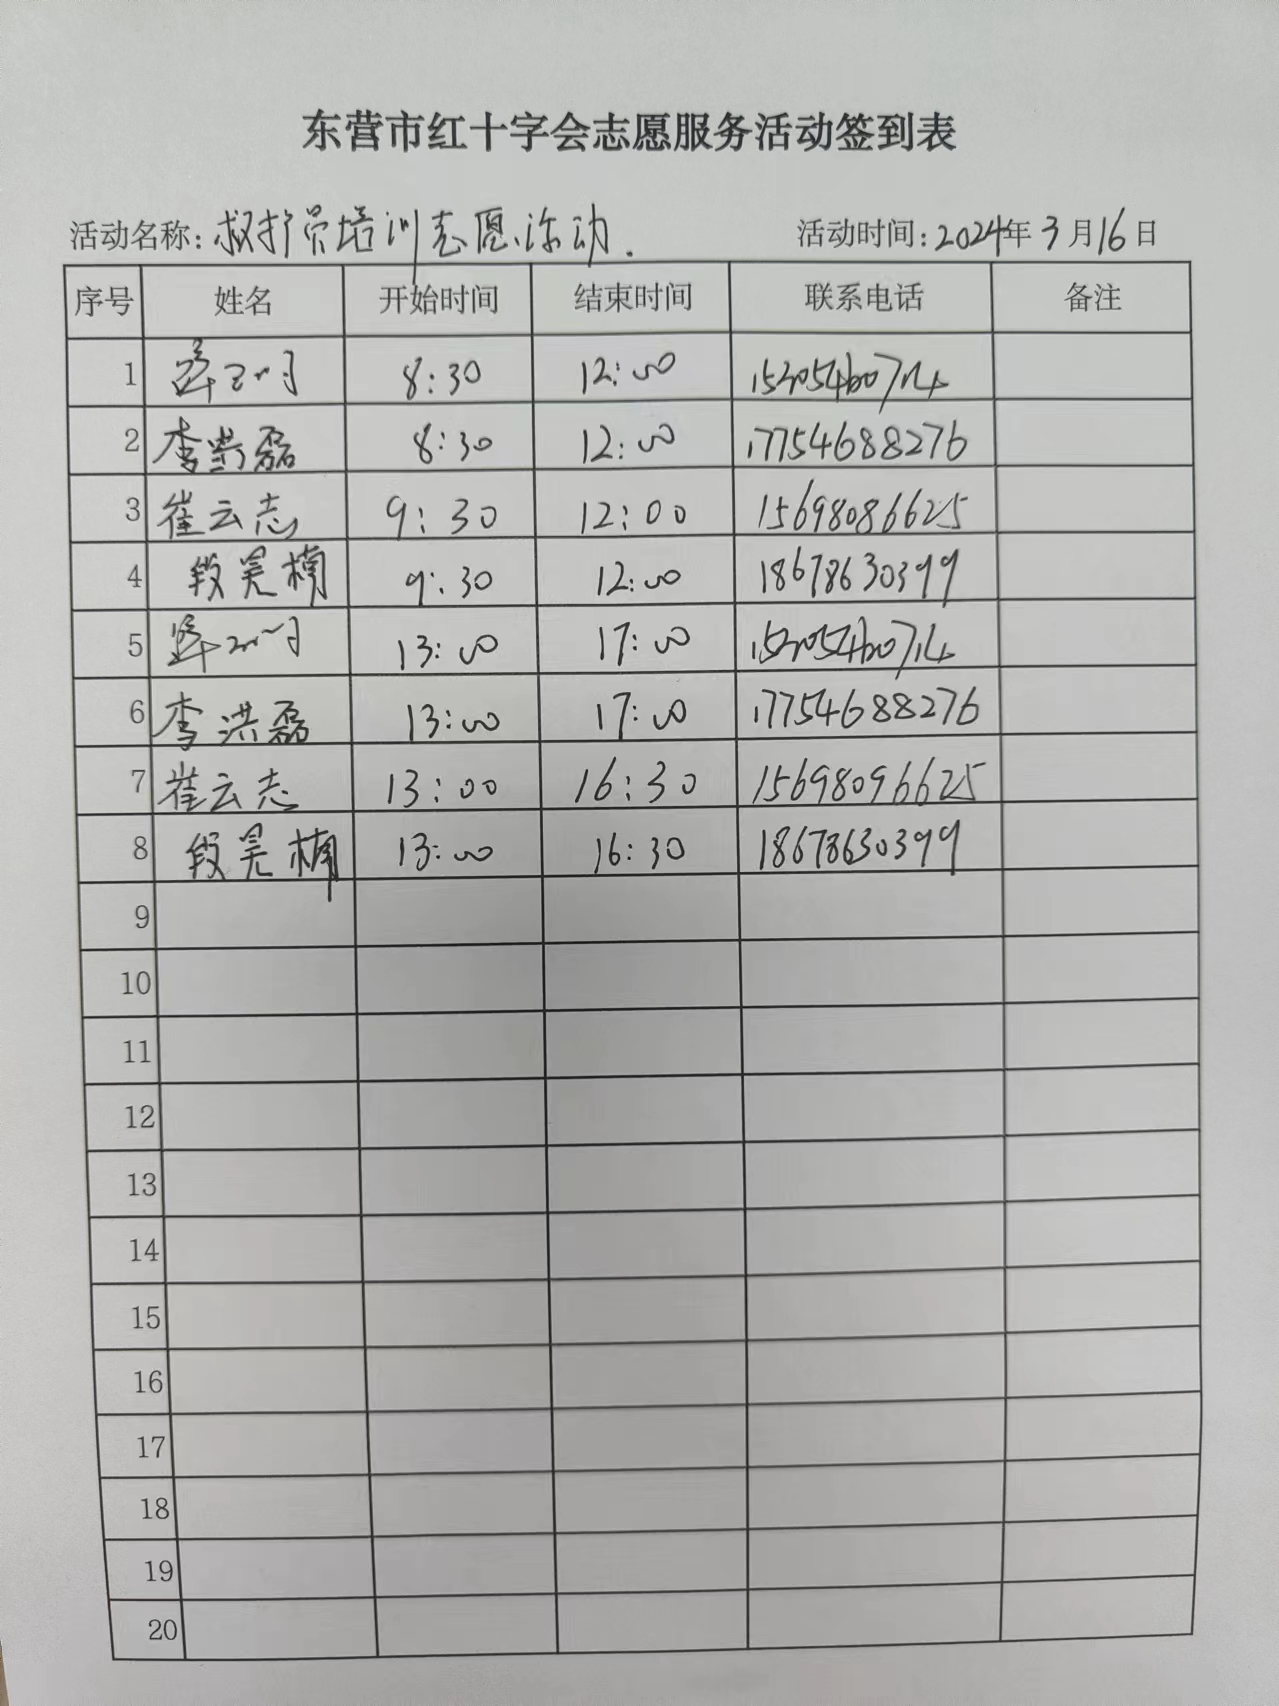 东营市红十字会志愿服务活动签到表
活动名称：救护员培训志愿活动. 活动时间：2024年3月16日
序号 姓名 开始时间 结束时间 联系电话 备注
1 8:30 12:00
2 李洪磊 8:30 12:00 17754688276
3 崔云志 9:30 12:00 15698086625
4 段昊楠 9:30 12:00 18678630399
5 13:00 17:00
6 李洪磊 13:00 17:00 17754688276
7 崔云志 13:00 16:30 15698096625
8 段昊楠 13:00 16:30 18678630399
9
10
11
12
13
14
15
16
17
18
19
20